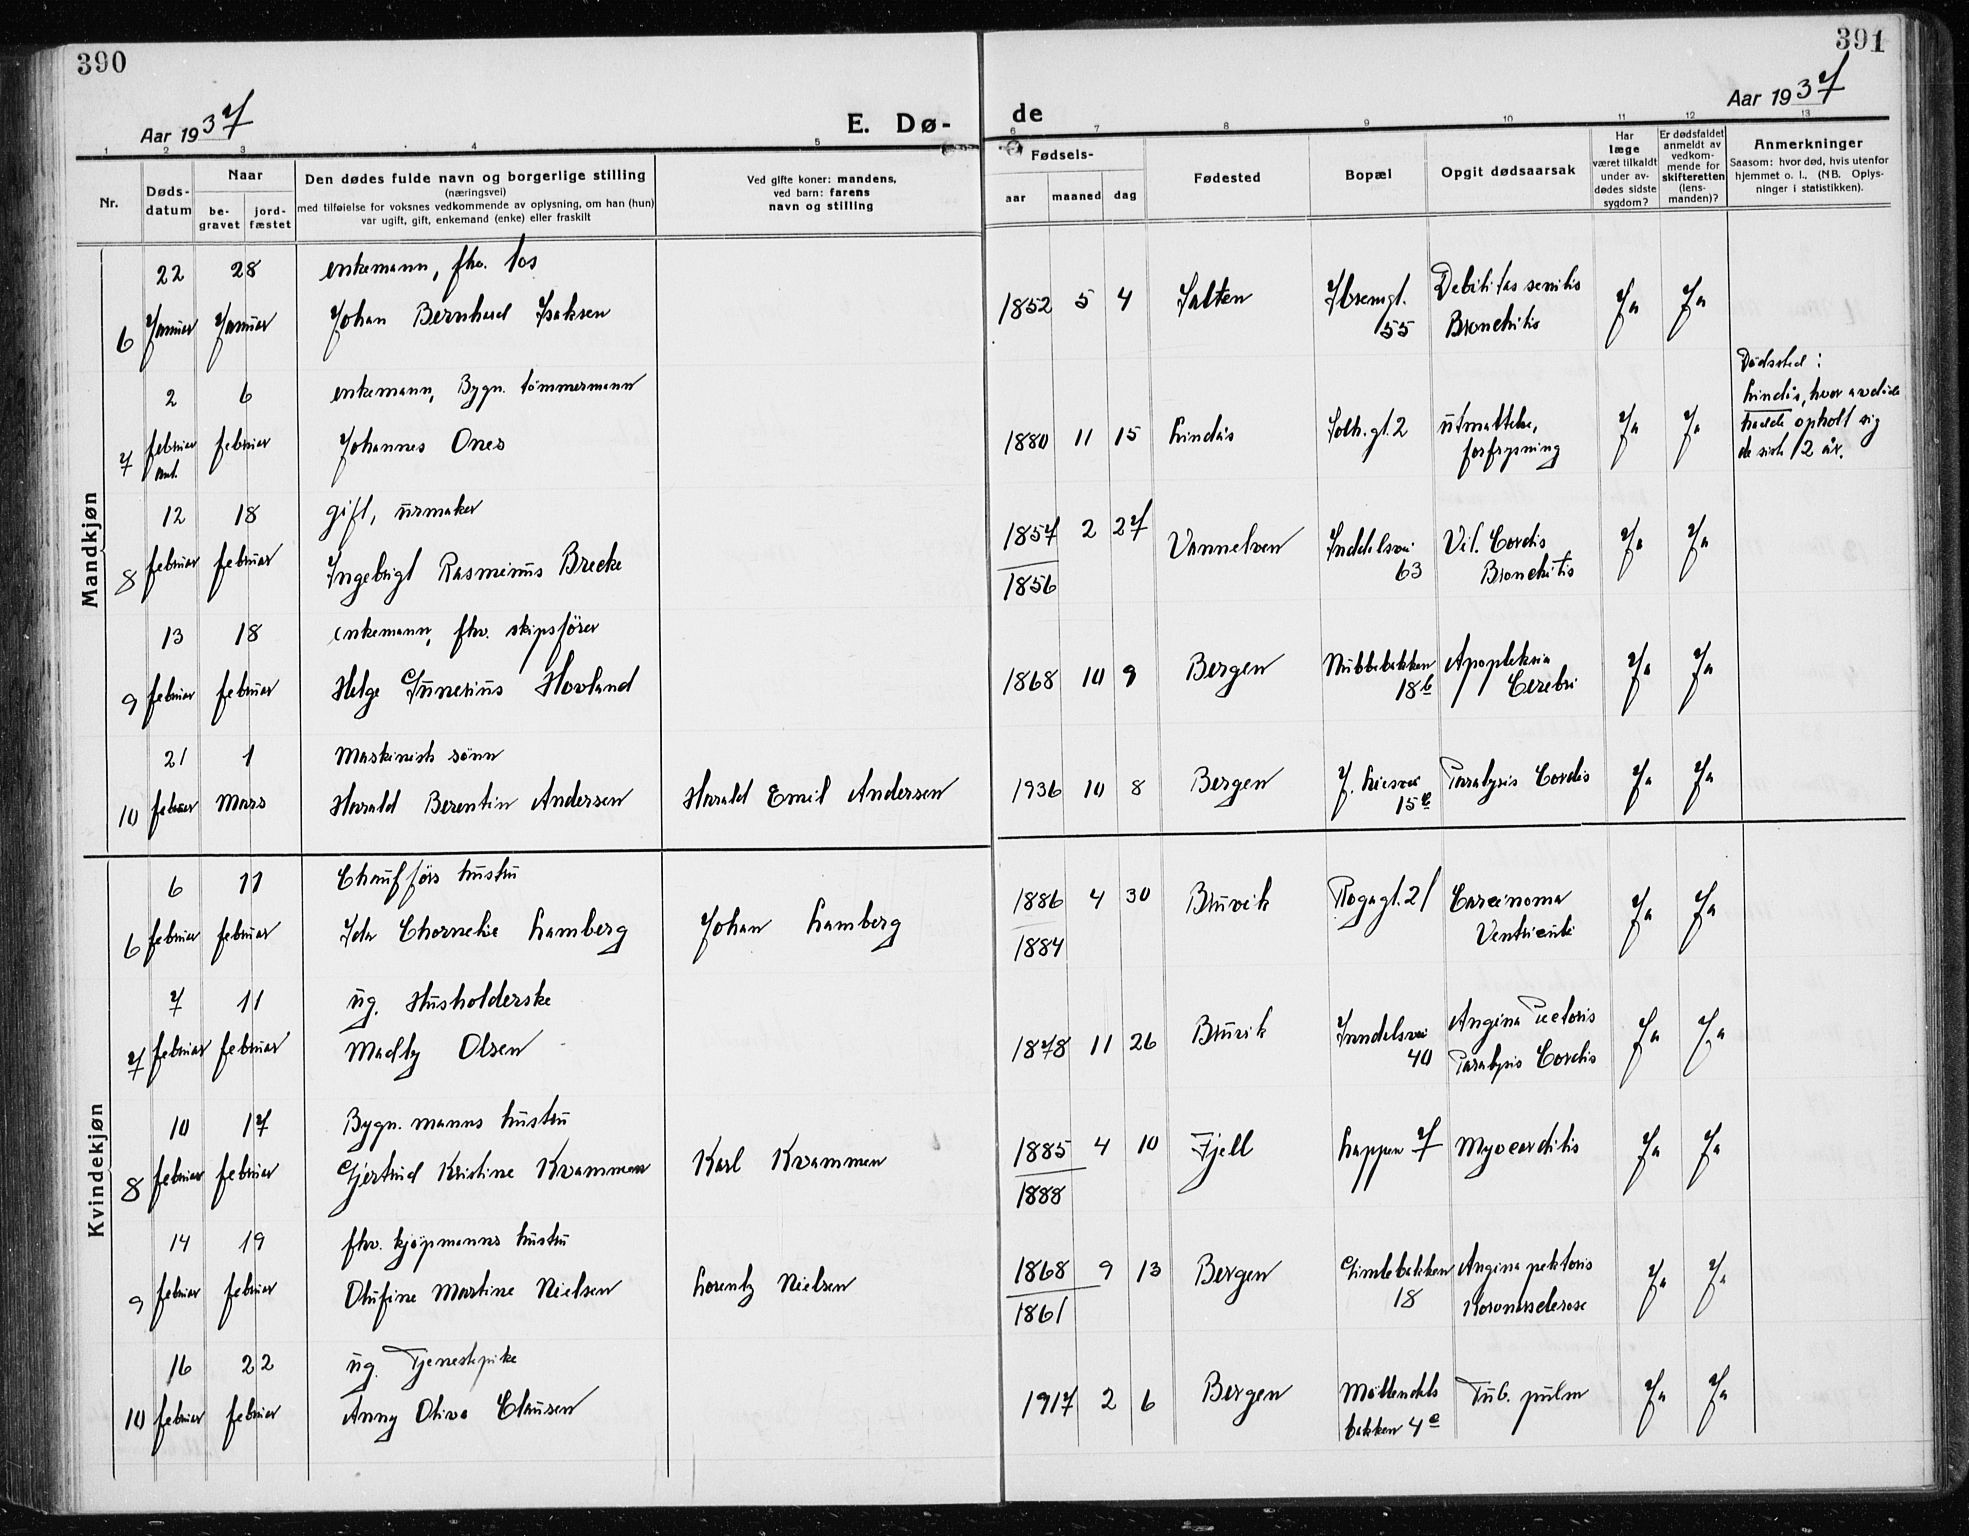 390
391
Aar 1937
E. Dø-
de
Aar 1937
1 2 3 4 5 6 7 8 9 10 11 12 13
Nr.
Døds-
datum
Naar
be-
gravet
jord-
fæstet
Den dødes fulde navn og borgerlige stilling
(næringsvei)
med tilføielse for voksnes vedkommende av oplysning, om han (hun)
var ugift, gift, enkemand (enke) eller fraskilt
Ved gifte koner: mandens,
ved barn: farens
navn og stilling
Fødsels-
aar
maaned
dag
Fødested
Bopæl
Opgit dødsaarsak
Har
læge
været tilkaldt
under av-
dødes sidste
sygdom?
Er dødsfaldet
anmeldt av
vedkom-
mende for
skifteretten
(lens-
manden)?
Anmerkninger
Saasom: hvor død, hvis utenfor
hjemmet o. l., (NB. Oplys-
ninger i statistikken).
Mandkjøn
22 28 enkemann, fhv. los
6 Januar Januar Johan Bernhard Isaksen
1852 5 4 Salten Ibsensgt. Debilitas senilis Ja Ja
55 Bronchitis
2 6 enkemann, Bygn. tømmermann
7 februar februar Johannes Ones
ant.
1880 11 15 Lindås Solh.gt. 2 utmattelse, Ja Ja
forfrysning
Dødssted:
Lindås, hvor avdøde
hadde opholt sig
de siste 12 år.
12 18 gift, urmaker
8 februar februar Ingebrigt Rasminus Brekke
1857 2 27 Vannelven Inndalsvei Vit. Cordis Ja Ja
1856 63 Bronchitis
13 18 enkemann, fhv. skipsfører
9 februar februar Helge Gunerius Hovland
1868 10 9 Bergen Nubbebakken Apopleksia Ja Ja
18b Cerebri
21 1 Maskinists sønn
10 februar Mars Harald Berentin Andersen Harald Emil Andersen
1936 10 8 Bergen J. Liesvei Paralysis Cordis Ja Ja
15
Kvindekjøn
6 11 Chaufførs hustru
6 februar februar Ida Chornelie Lamberg Johan Lamberg
1886 4 30 Bruvik Rogagt. 21 Carcinoma Ja Ja
1884 Ventriculi
7 11 ug. Husholderske
7 februar februar Madly Olsen
1878 11 26 Bruvik Inndalsvei Angina Pectoris Ja Ja
40 Paralysis Cordis
10 17 Bygn. manns hustru
8 februar februar Gjertrud Kristine Kvammen Karl Kvammen
1885 4 10 Fjell Lappen 7 Myocarditis Ja Ja
1888
14 19 fhv. kjøpmanns hustru
9 februar februar Olufine Martine Nielsen Lorentz Nielsen
1868 9 13 Bergen Gimlebakken Angina pektoris Ja Ja
1861 18 Koronarsclerose
16 22 ug. Tjenestepike
10 februar februar Anny Oliva Clausen
1917 2 6 Bergen Møllendals Tub. pulm Ja Ja
bakken 4e